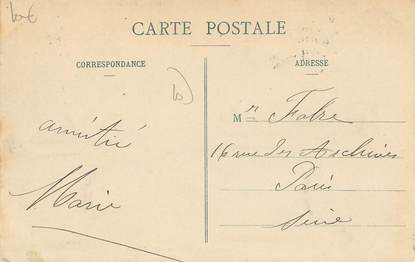 CARTE POSTALE
CORRESPONDANCE
ADRESSE
amitié
Marie
Mr Fabre
16 rue des Archives
Paris
Seine